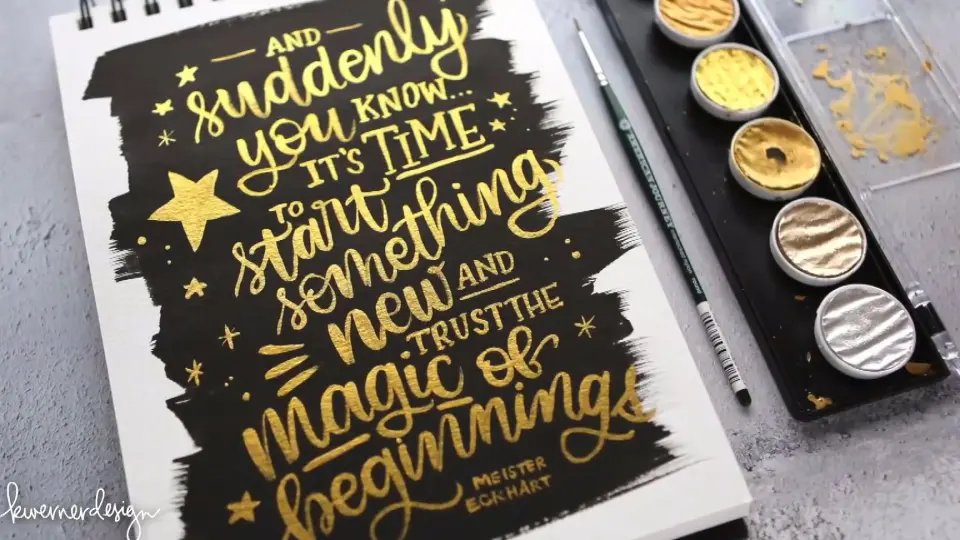 AND
suddenly
you KNOW...
IT'S TIME
TO
start
something
new AND
TRUST THE
magic of
beginnings
MEISTER
ECKHART
kwernerdesign